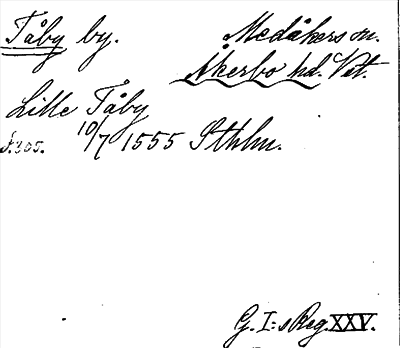 Tåby by. Medåkers sn.
Åkerbo hd. Vstm.
Lille Tåby
s. 305. 10/7 1555 Sthlm.
G. I:s Reg. XXV.